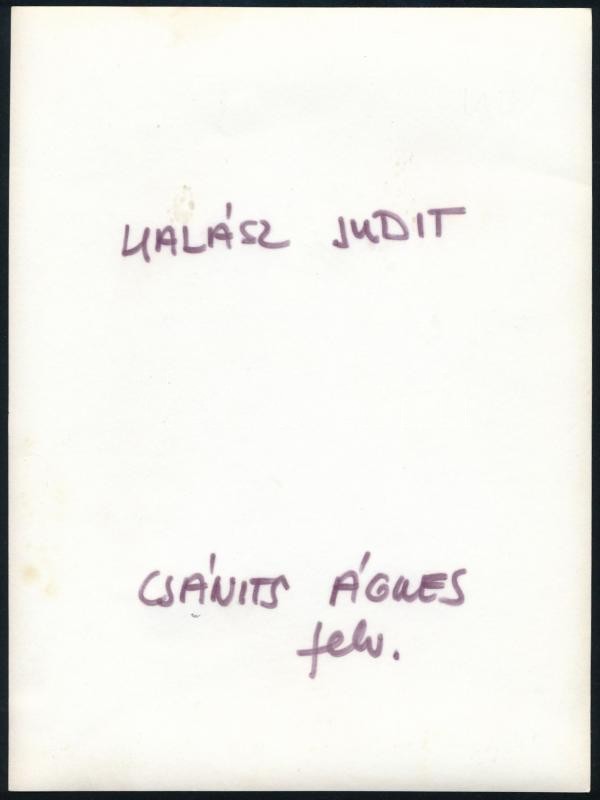 HALÁSZ JUDIT
CSÁNITS ÁGNES
felv.